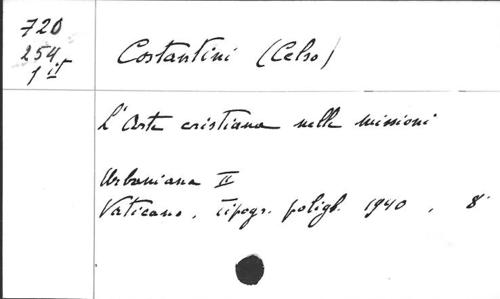 720
254
1
Costantini (Celso)
L'Arte cristiana nelle missioni
Urbaniana II
Vaticano, Tipogr. poligl. 1940, 8°